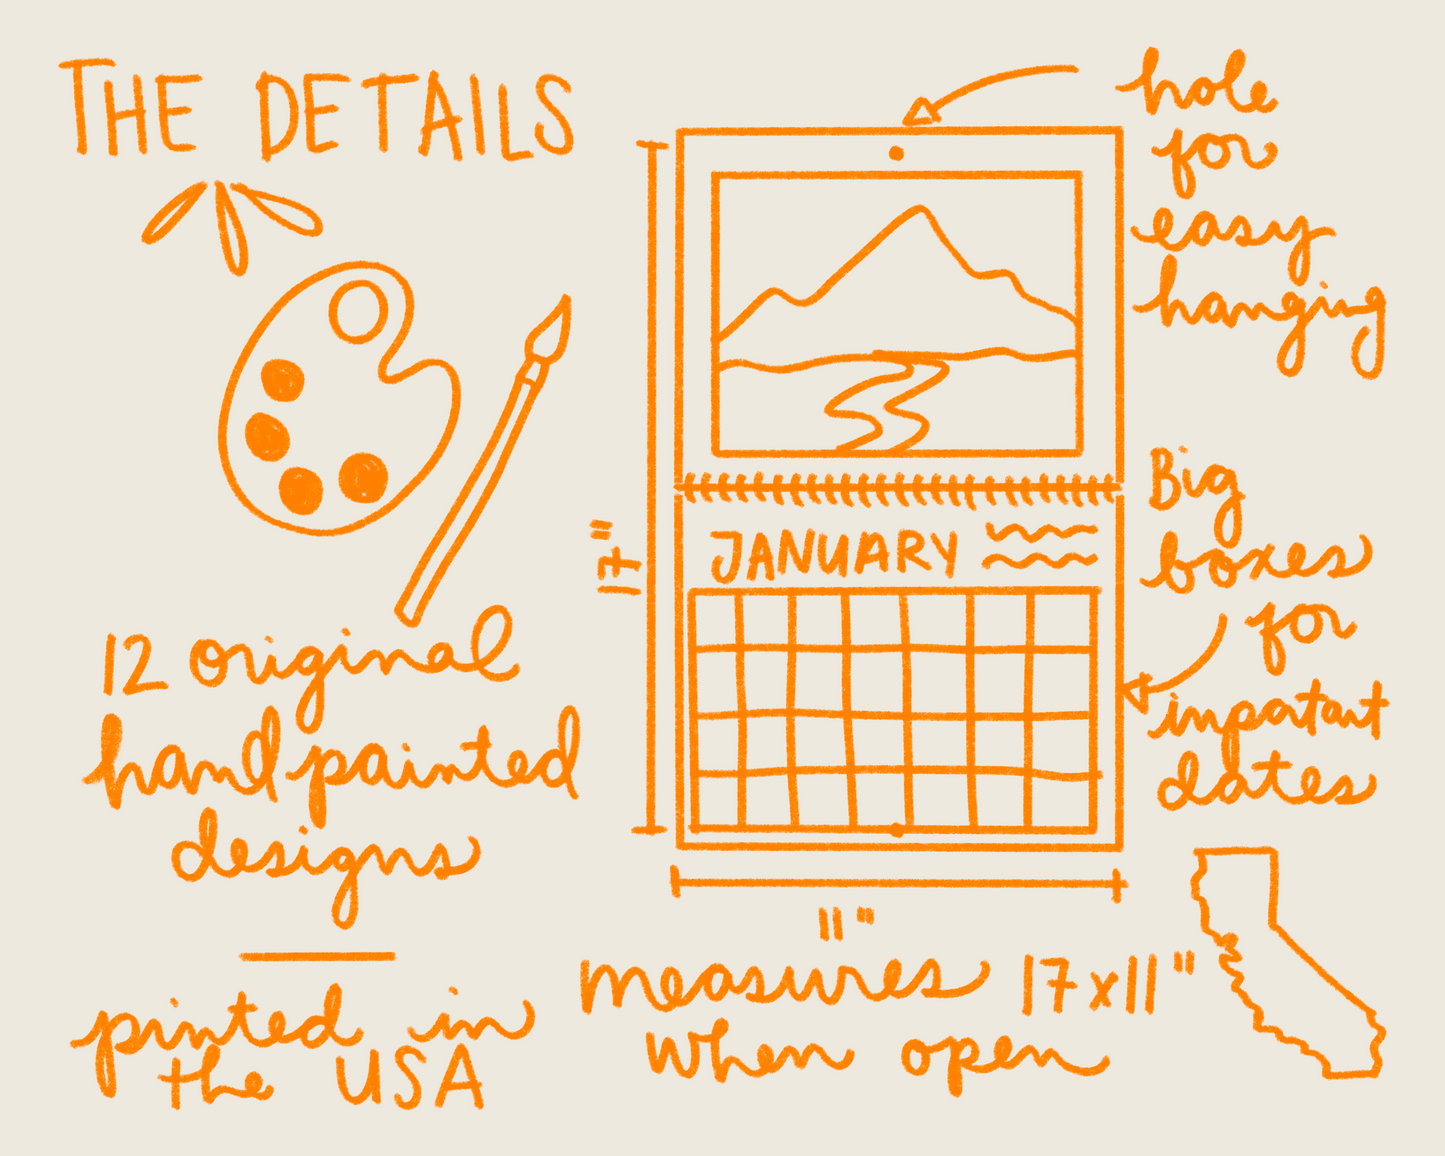 THE DETAILS
12 original
hand painted
designs
printed in
the USA
hole
for
easy
hanging
17"
JANUARY
Big
boxes
for
important
dates
11"
measures 17x11"
when open